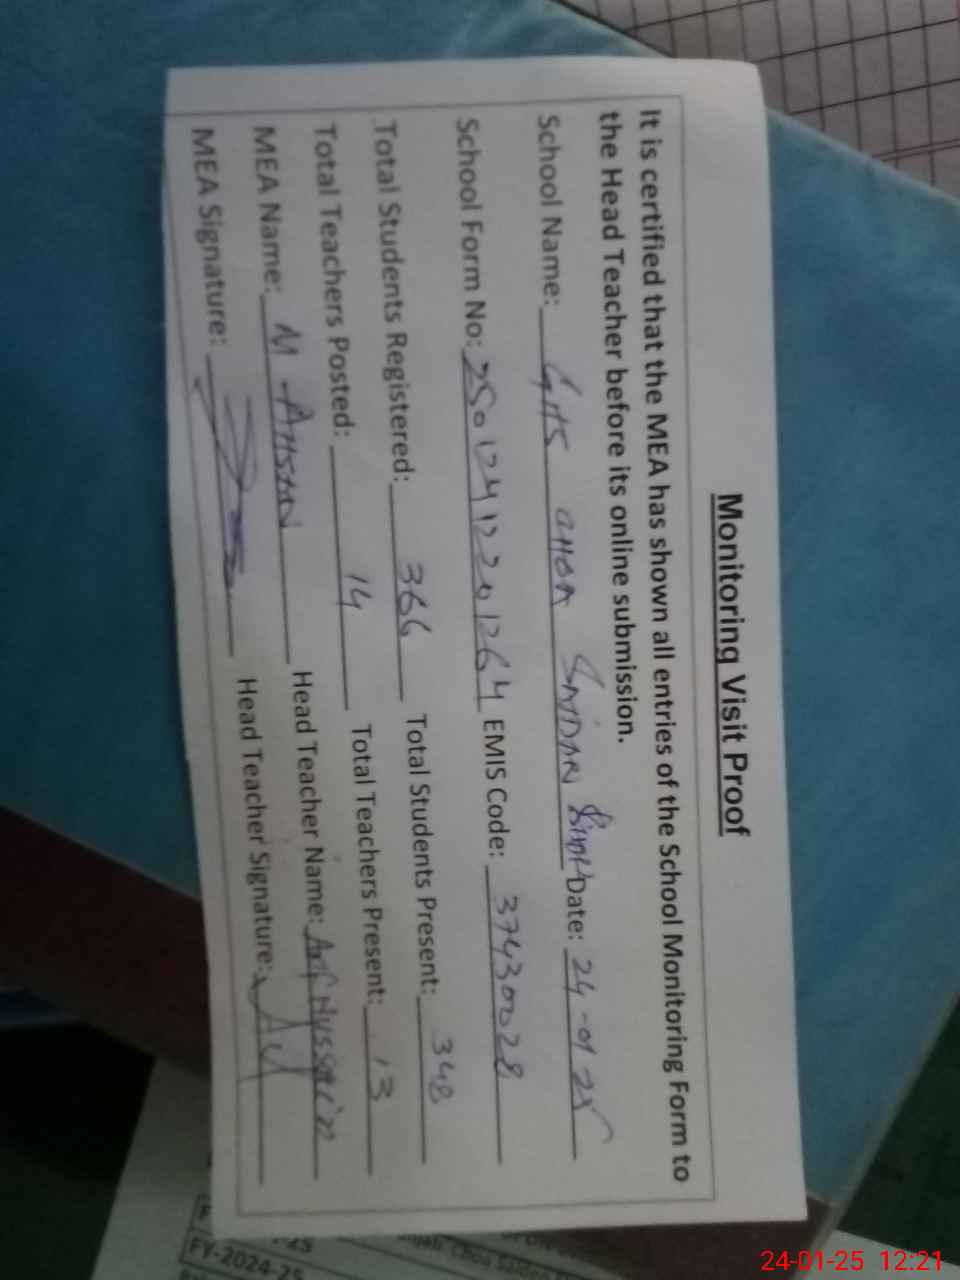 Monitoring Visit Proof
It is certified that the MEA has shown all entries of the School Monitoring Form to
the Head Teacher before its online submission.
School Name: GHS CHOA Date: 24-01 25
School Form No: 25012412201264 EMIS Code: 37430028
Total Students Registered: 366 Total Students Present: 348
Total Teachers Posted: 14 Total Teachers Present: 13
MEA Name: M AHSAN Head Teacher Name: Arif Hussain
MEA Signature: Head Teacher Signature:
FY-2024-25
24-01-25 12:21